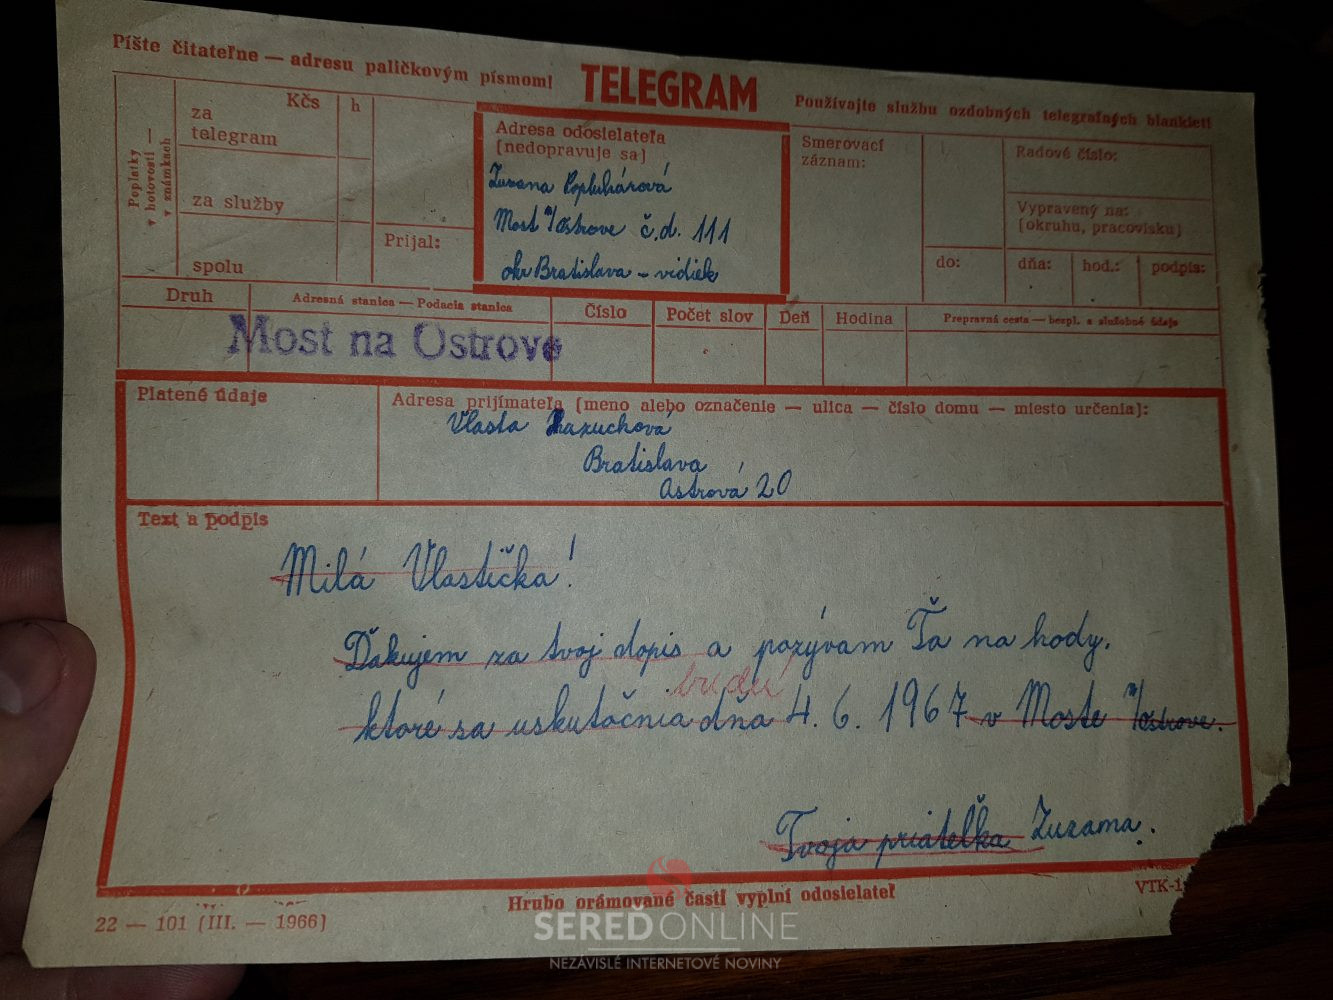 Píšte čitateľne — adresu paličkovým písmom!
TELEGRAM
Používajte službu ozdobných telegrafných blankiet!
Poplatky
v hotovosti —
v známkach
Kčs
h
za
telegram
za služby
spolu
Prijal:
Adresa odosielateľa
(nedopravuje sa)
Zuzana Popluhárová
Most n/Ostrove č.d. 111
okr Bratislava - vidiek
Smerovací
záznam:
Radové číslo:
Vypravený na:
(okruhu, pracovisku)
do:
dňa:
hod.:
podpis:
Druh
Adresná stanica — Podacia stanica
Číslo
Počet slov
Deň
Hodina
Prepravná cesta — bezpl. a služobné údaje
Most na Ostrove
Platené údaje
Adresa prijímateľa (meno alebo označenie — ulica — číslo domu — miesto určenia):
Vlasta
Bratislava
Astrová 20
Text a podpis
Milá Vlastička!
Ďakujem za tvoj dopis a pozývam Ťa na hody.
budú
ktoré sa uskutočnia dňa 4. 6. 1967 v Moste n/Ostrove.
Tvoja priateľka Zuzama.
22 — 101 (III. — 1966)
Hrubo orámované časti vyplní odosielateľ
VTK-1
SEREĎ ONLINE
NEZÁVISLÉ INTERNETOVÉ NOVINY